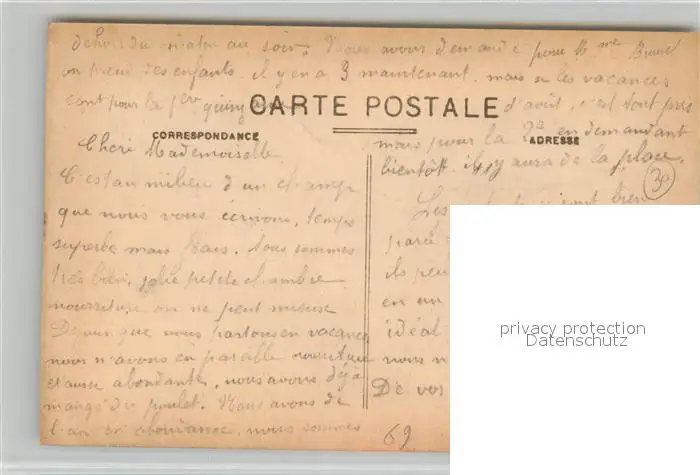 dehors du matin au soir. Nous avons demandé pour Mme Brunel
on prend des enfants. il y en a 3 maintenant. mais si les vacances
sont pour la 1ère quinzaine d'août, c'est tout pris
CARTE POSTALE
mais pour la 2e en demandant
bientôt il y aura de la place.
CORRESPONDANCE
ADRESSE
30
Cherè Mademoiselle
C'est au milieu d'un champ
que nous vous écrivons, temps
superbe mais frais. Nous sommes
très bien, jolie petite chambre
nourriture on ne peut mieux
Depuis que nous partons en vacances
nous n'avons eu pareille nourriture
et aussi abondante, nous avons déjà
mangé du poulet. Nous avons de
l'air en abondance, nous sommes
Les bien
ils
en un
idéal
nous n
De vos
69
privacy protection
Datenschutz